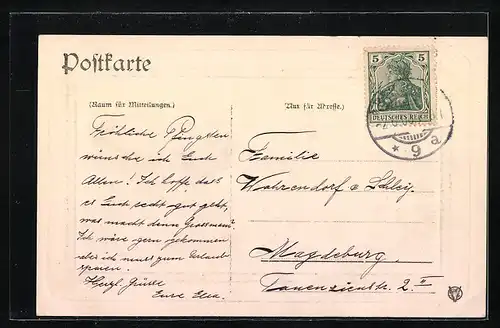 Postkarte
(Raum für Mitteilungen.)
Nur für Adresse.)
5 5
DEUTSCHES REICH
* 9 a
Fröhliche Pfingsten
wünsche ich Euch
Allen! Ich hoffe dass
es Euch recht gut geht,
was macht denn Grossmama?
Ich wäre gern gekommen
aber ich muss zum
sparen.
Herzl. Grüsse
Eure Elsa.
Familie
Wahrendorf
Magdeburg.
Tauenzienstr. 2 II